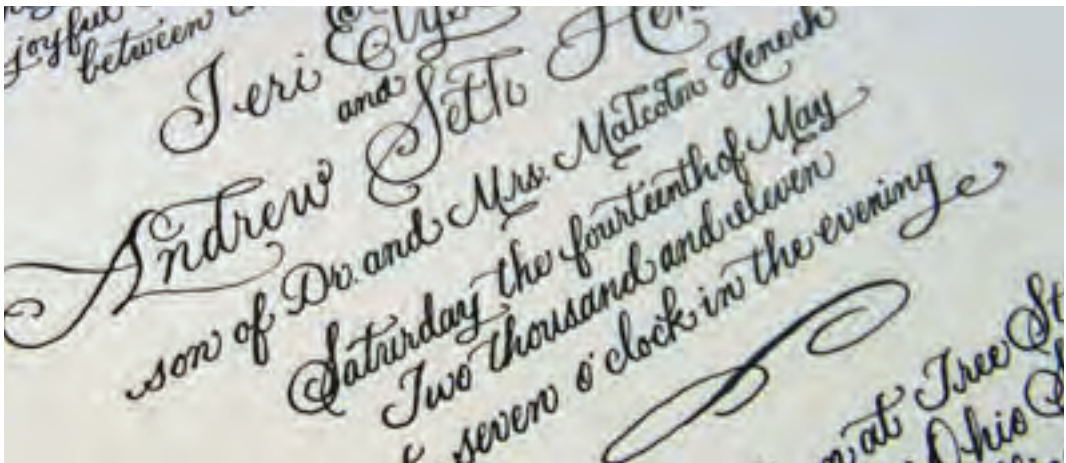 joyful
between
Jeri
and
Andrew Seth
son of Dr. and Mrs. Malcolm Henoch
Saturday the fourteenth of May
Two thousand and eleven
seven o'clock in the evening
at Tree
Ohio